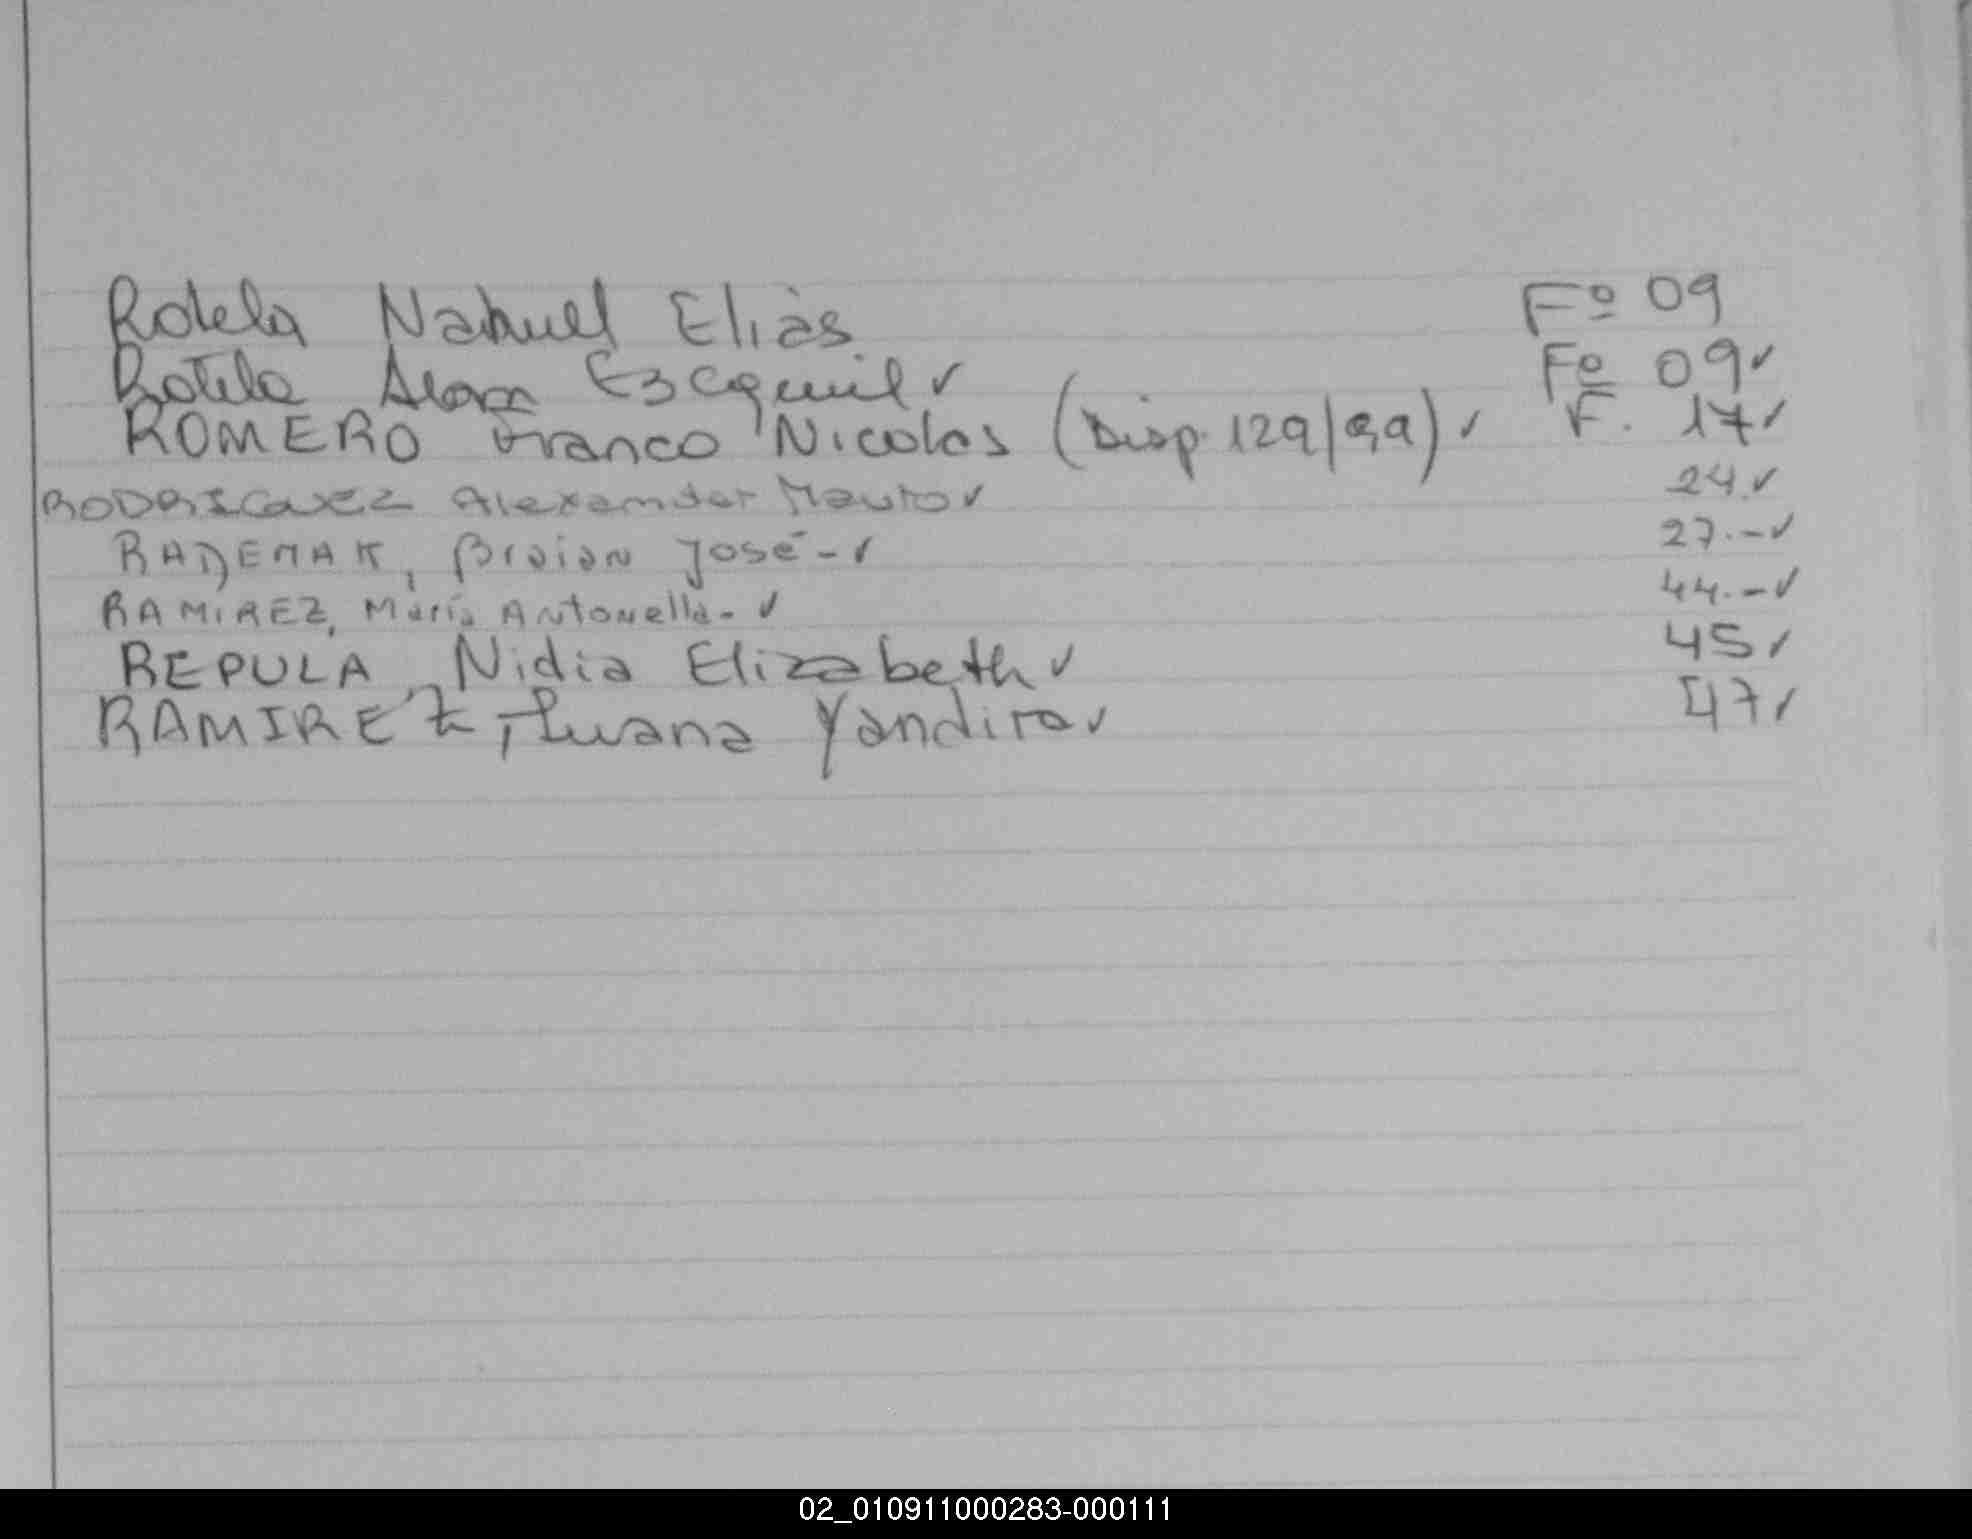 Rotela Nahuel Elias Fº 09
Rotela Alan Ezequiel ✓ Fº 09 ✓
ROMERO Franco Nicolas (Disp. 129/99) ✓ F. 17 ✓
RODRIGUEZ Alexander Mauro ✓ 24. ✓
RADEMAK, Braian José - ✓ 27.- ✓
RAMIREZ, María Antonella - ✓ 44.- ✓
REPULA, Nidia Elizabeth ✓ 45 ✓
RAMIREZ, Luana Yandira ✓ 47 ✓
02_010911000283-000111